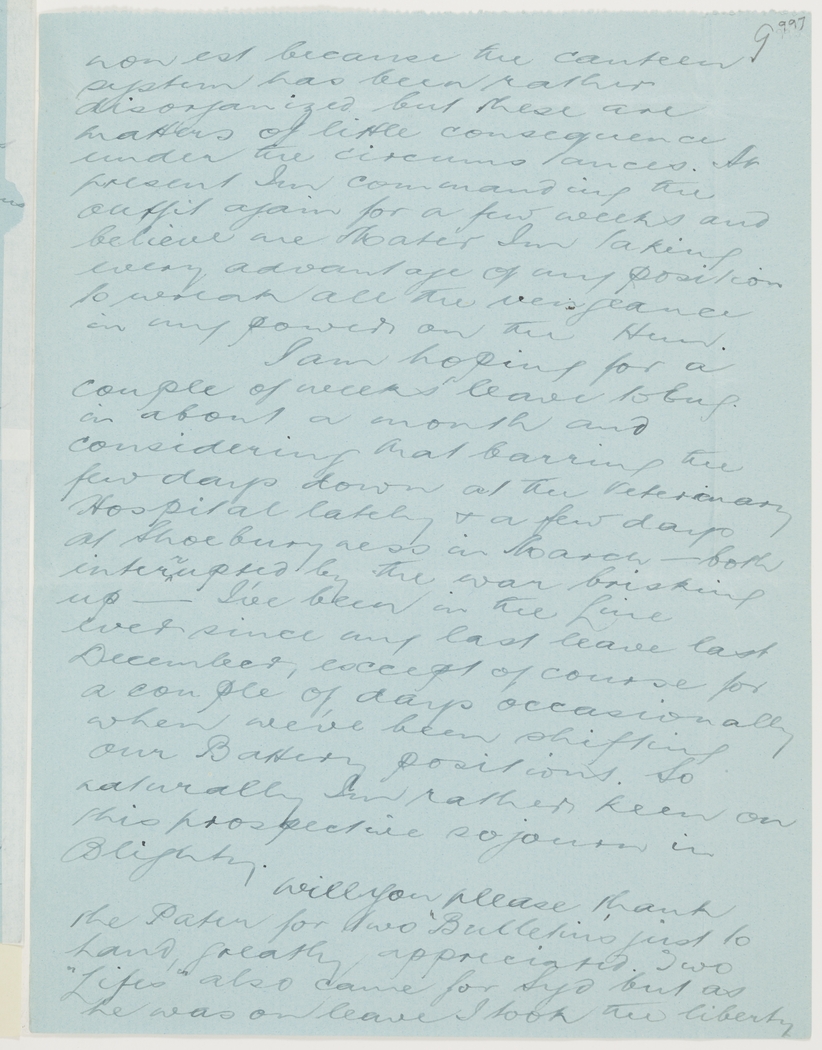 9 997
non est because the canteen
system has been rather
disorganized but these are
matters of little consequence
under the circumstances. At
present I'm commanding the
outfit again for a few weeks and
believe me Mater I'm taking
every advantage of my position
to wreak all the vengeance
in my power on the Hun.
I am hoping for a
couple of weeks' leave to Eng.
in about a month and
considering that barring the
few days down at the Veterinary
Hospital lately & a few days
at Shoeburyness in March — both
interrupted by the war brisking
up — I've been in the line
ever since my last leave last
December, except of course for
a couple of days occasionally
when we've been shifting
our Battery positions. So
naturally I'm rather keen on
this prospective sojourn in
Blighty.
Will you please thank
the Pater for two "Bulletins" just to
hand, greatly appreciated. Two
"Lifes" also came for Syd but as
he was on leave I took the liberty